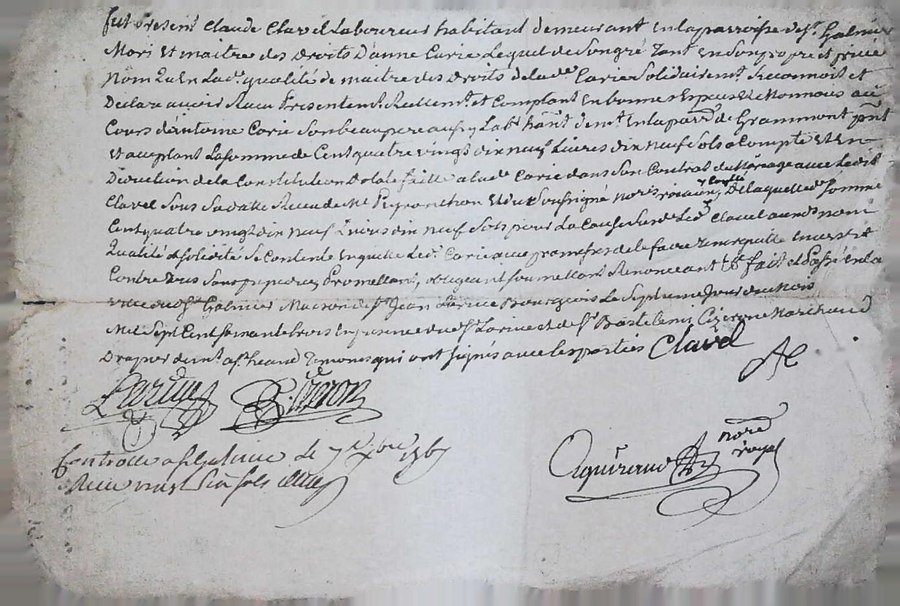 fut Present Claude Clavel Laboureur habitant demeurant en la parroisse de St Galmier
Mari et maitre des Droits D'anne Carie Lequel de Son gré tant en Son propre et privé
Nom qu'en Lad. qualité de maitre des Droits de lade Carie Solidairemt Reconnoit et
Declare avoir Recu Presentemt Reellemt et Comptant en bonnes Especes et Monnoies au
Cours d'antoine Carie Son beau pere aussy Labr habt demt en la parsse de Grammont pnt
et acceptant La Somme de Cent quatre vingt dix neuf Livres dix neuf Sols a Compte et en
Diduction de la Constitution Dotale faitte a lade Carie dans Son Contrat de Mariage avec Ledit
Clavel Sous Sa datte Recu de Me Peyronchon et Nous Soussigné nores De laquelle de Somme
Cent quatre vingt dix neuf Livres dix neuf Sols pour La Cause Susd. Led. Clavel auxd. nom
Qualité et Solidité Se Contente En quitte Led. Carie avec promesse de le faire tenir quitte Envers et
Contre tous Promettant, obligeant Soumettant Renonceant &a fait et Passé en la
ville du St Galmier Maison de Sr Jean Larive Bourgeois Le Septieme Jour du Mois
Mil Sept Cent Soixante trois En presence dud. Sr Larive et de Sr Bartelemi Marchand
Drapier dud. St Temoins qui ont Signés avec les parties Clavel
Larive
Controllé a St Galmier le 7
Recu vingt Six Sols
nore
royal